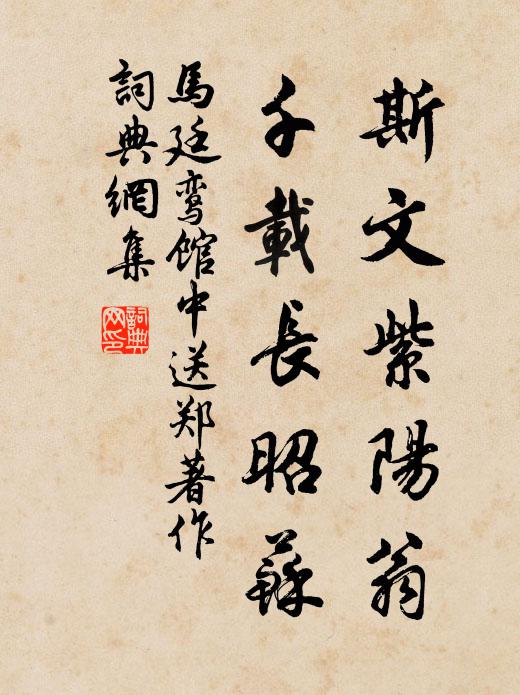 斯文紫陽翁
千載長昭蘇
馬廷鸾館中送郑著作
詞典網集
詞典网印